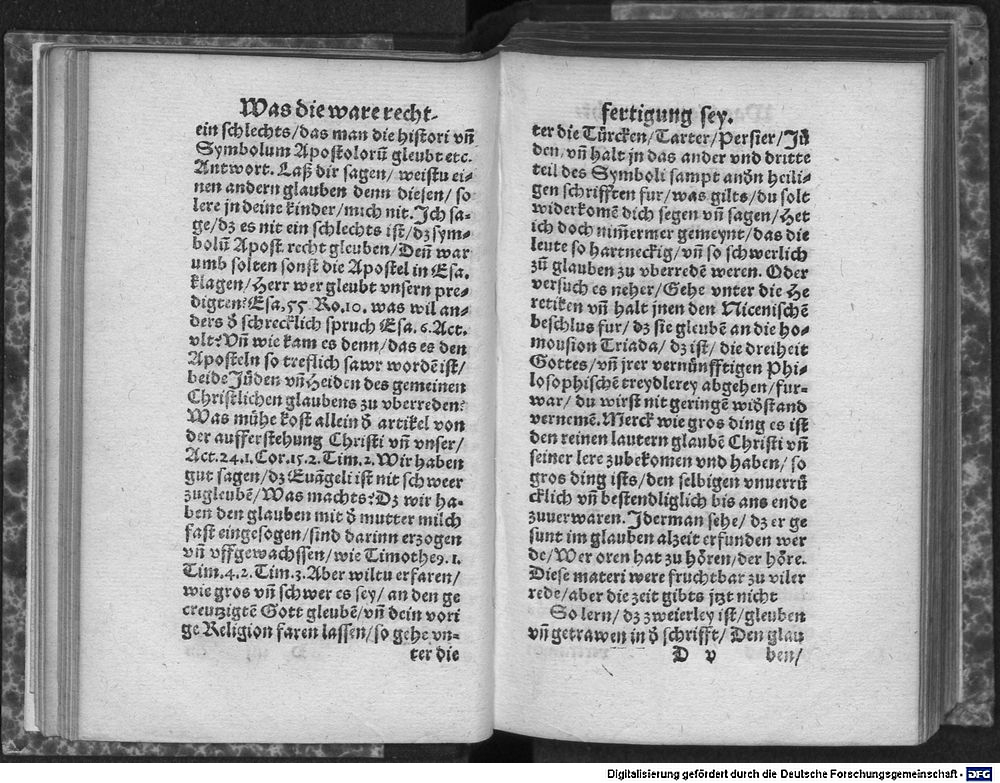 Was die ware recht-
ein schlechts/das man die histori vñ
Symbolum Apostolorũ gleubt etc.
Antwort. Laß dir sagen/ weistu ei-
nen andern glauben denn diesen/ so
lere jn deine kinder/mich nit. Ich sa-
ge/dz es nit ein schlechts ist/dz sym-
bolũ Apost. recht gleuben/Deñ war
umb solten sonst die Apostel in Esa.
klagen/Herr wer gleubt vnsern pre-
digten? Esa. 55. Ro. 10. was wil an-
ders ð schrecklich spruch Esa. 6. Act.
vlt? Vñ wie kam es denn/das es den
Aposteln so treflich sawr wordẽ ist/
beide Jüden vñ Heiden des gemeinen
Christlichen glaubens zu vberreden?
Was mühe kost allein ð artikel von
der aufferstehung Christi vñ vnser/
Act. 24. 1. Cor. 15. 2. Tim. 2. Wir haben
gut sagen/dz Euãgeli ist nit schweer
zugleubẽ/Was machts? Dz wir ha-
ben den glauben mit ð mutter milch
fast eingesogen/sind darinn erzogen
vñ vffgewachssen/wie Timothe9. 1.
Tim. 4. 2. Tim. 3. Aber wiltu erfaren/
wie gros vñ schwer es sey/ an den ge
creutzigtẽ Gott gleubẽ/vñ dein vori
ge Religion faren lassen/so gehe vn-
ter die
fertigung sey.
ter die Türcken/Tarter/Persier/Jü
den/vñ halt jn das ander vnd dritte
teil des Symboli sampt andñ heili-
gen schrifften fur/was gilts/du solt
widerkomẽ dich segen vñ sagen/Het
ich doch nim̃ermer gemeynt/das die
leute so hartneckig/vñ so schwerlich
zũ glauben zu vberredẽ weren. Oder
versuch es neher/Gehe vnter die He
retiken vñ halt jnen den Nicenischẽ
beschlus fur/dz sie gleubẽ an die ho-
mousion Triada/ dz ist/ die dreiheit
Gottes/vñ jrer vernünfftigen Phi-
losophischẽ treydlerey abgehen/fur-
war/ du wirst nit geringẽ widstand
vernemẽ. Merck wie gros ding es ist
den reinen lautern glaubẽ Christi vñ
seiner lere zubekomen vnd haben/ so
gros ding ists/den selbigen vnuerrü
cklich vñ bestendliglich bis ans ende
zuuerwaren. Jderman sehe/ dz er ge
sunt im glauben alzeit erfunden wer
de/Wer oren hat zu hören/der höre.
Diese materi were fruchtbar zu viler
rede/aber die zeit gibts jtzt nicht
So lern/ dz zweierley ist/gleuben
vñ getrawen in ð schrifft/ Den glau
D v ben/
Digitalisierung gefördert durch die Deutsche Forschungsgemeinschaft - DFG